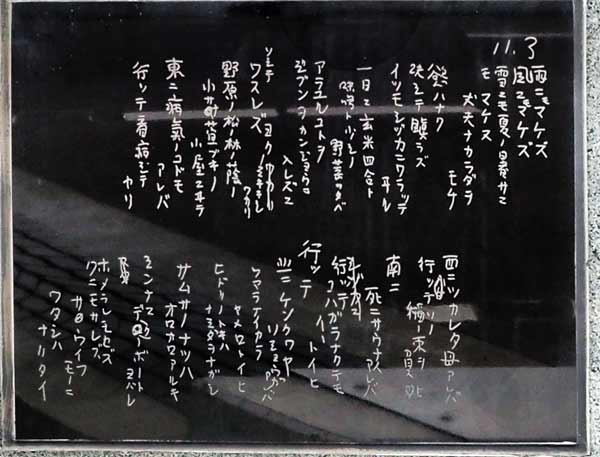 11.3
雨ニモマケズ
風ニモマケズ
雪ニモ夏ノ暑サニ
モ マケヌ
丈夫ナカラダヲ
モチ
慾ハナク
決シテ瞋ラズ
イツモシヅカニワラッテ
ヰル
一日ニ玄米四合ト
味噌ト少シノ
野菜ヲタベ
アラユルコトヲ
ジブンヲカンジョウニ
入レズニ
ヨクミキキシ
ワカリ
ソシテ
ワスレズ
野原ノ松ノ林ノ蔭ノ
小サナ萓ブキノ
小屋ニヰテ
東ニ病氣ノコドモ
アレバ
行ッテ看病シテ
ヤリ
西ニツカレタ母アレバ
行ッテソノ
稲ノ束ヲ
負ヒ
南ニ
死ニサウナ人
アレバ
行ッテ
コハガラナクテモ
イヽトイヒ
行ッテ
北ニケンクヮヤ
ソショウガ
アレバ
ツマラナイカラ
ヤメロトイヒ
ヒドリノトキハ
ナミダヲナガシ
サムサノナツハ
オロオロアルキ
ミンナニ
デクノボート
ヨバレ
ホメラレモセズ
クニモサレズ
サウイフ
モノニ
ワタシハ
ナリタイ